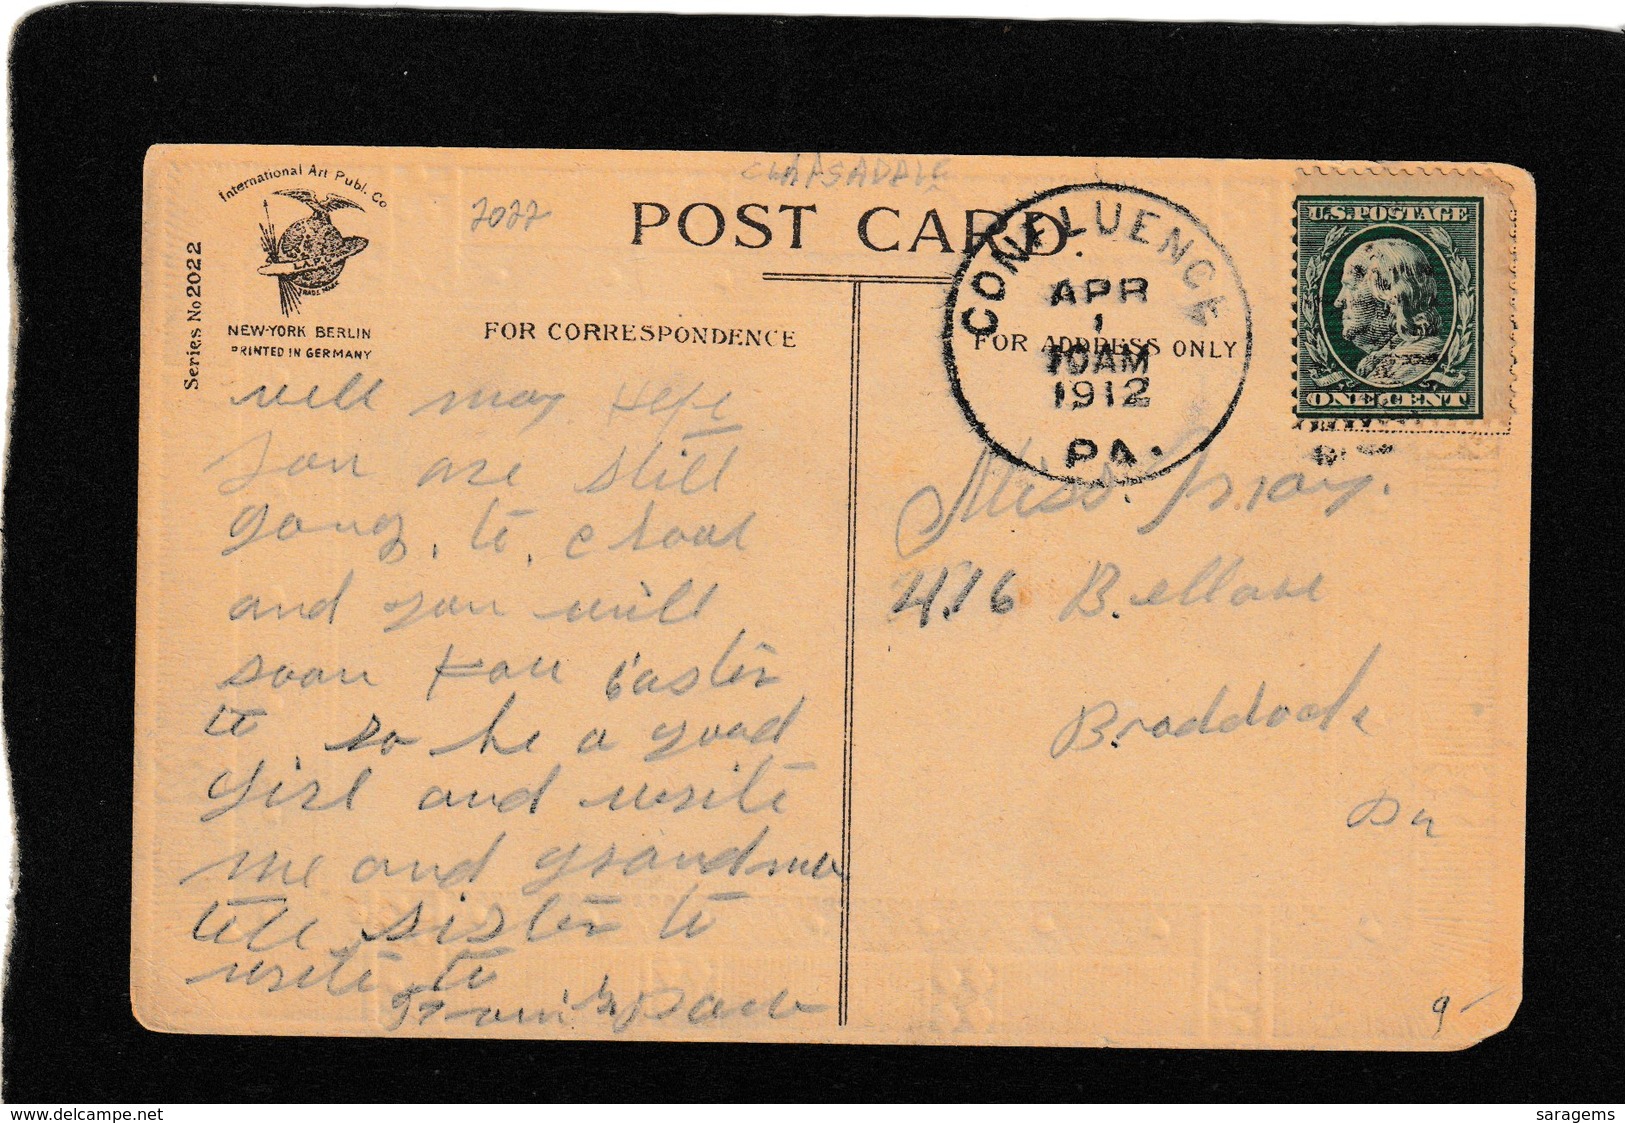 CLAPSADALE
International Art Publ. Co
I.A.P.Co
TRADE MARK
NEW-YORK BERLIN
PRINTED IN GERMANY
Series No 2022
2022
POST CARD.
FOR CORRESPONDENCE
FOR ADDRESS ONLY
CONFLUENCE
APR
1
10AM
1912
PA.
U.S.POSTAGE
ONE CENT
well may Hope
you are still
gong. to. chool
and you will
soon have Easter
to so be a good
girl and write
me and grandma
tell sister to
write to
Miss.
416 B.ellave
Braddock
Pa
9-
www.delcampe.net
saragems